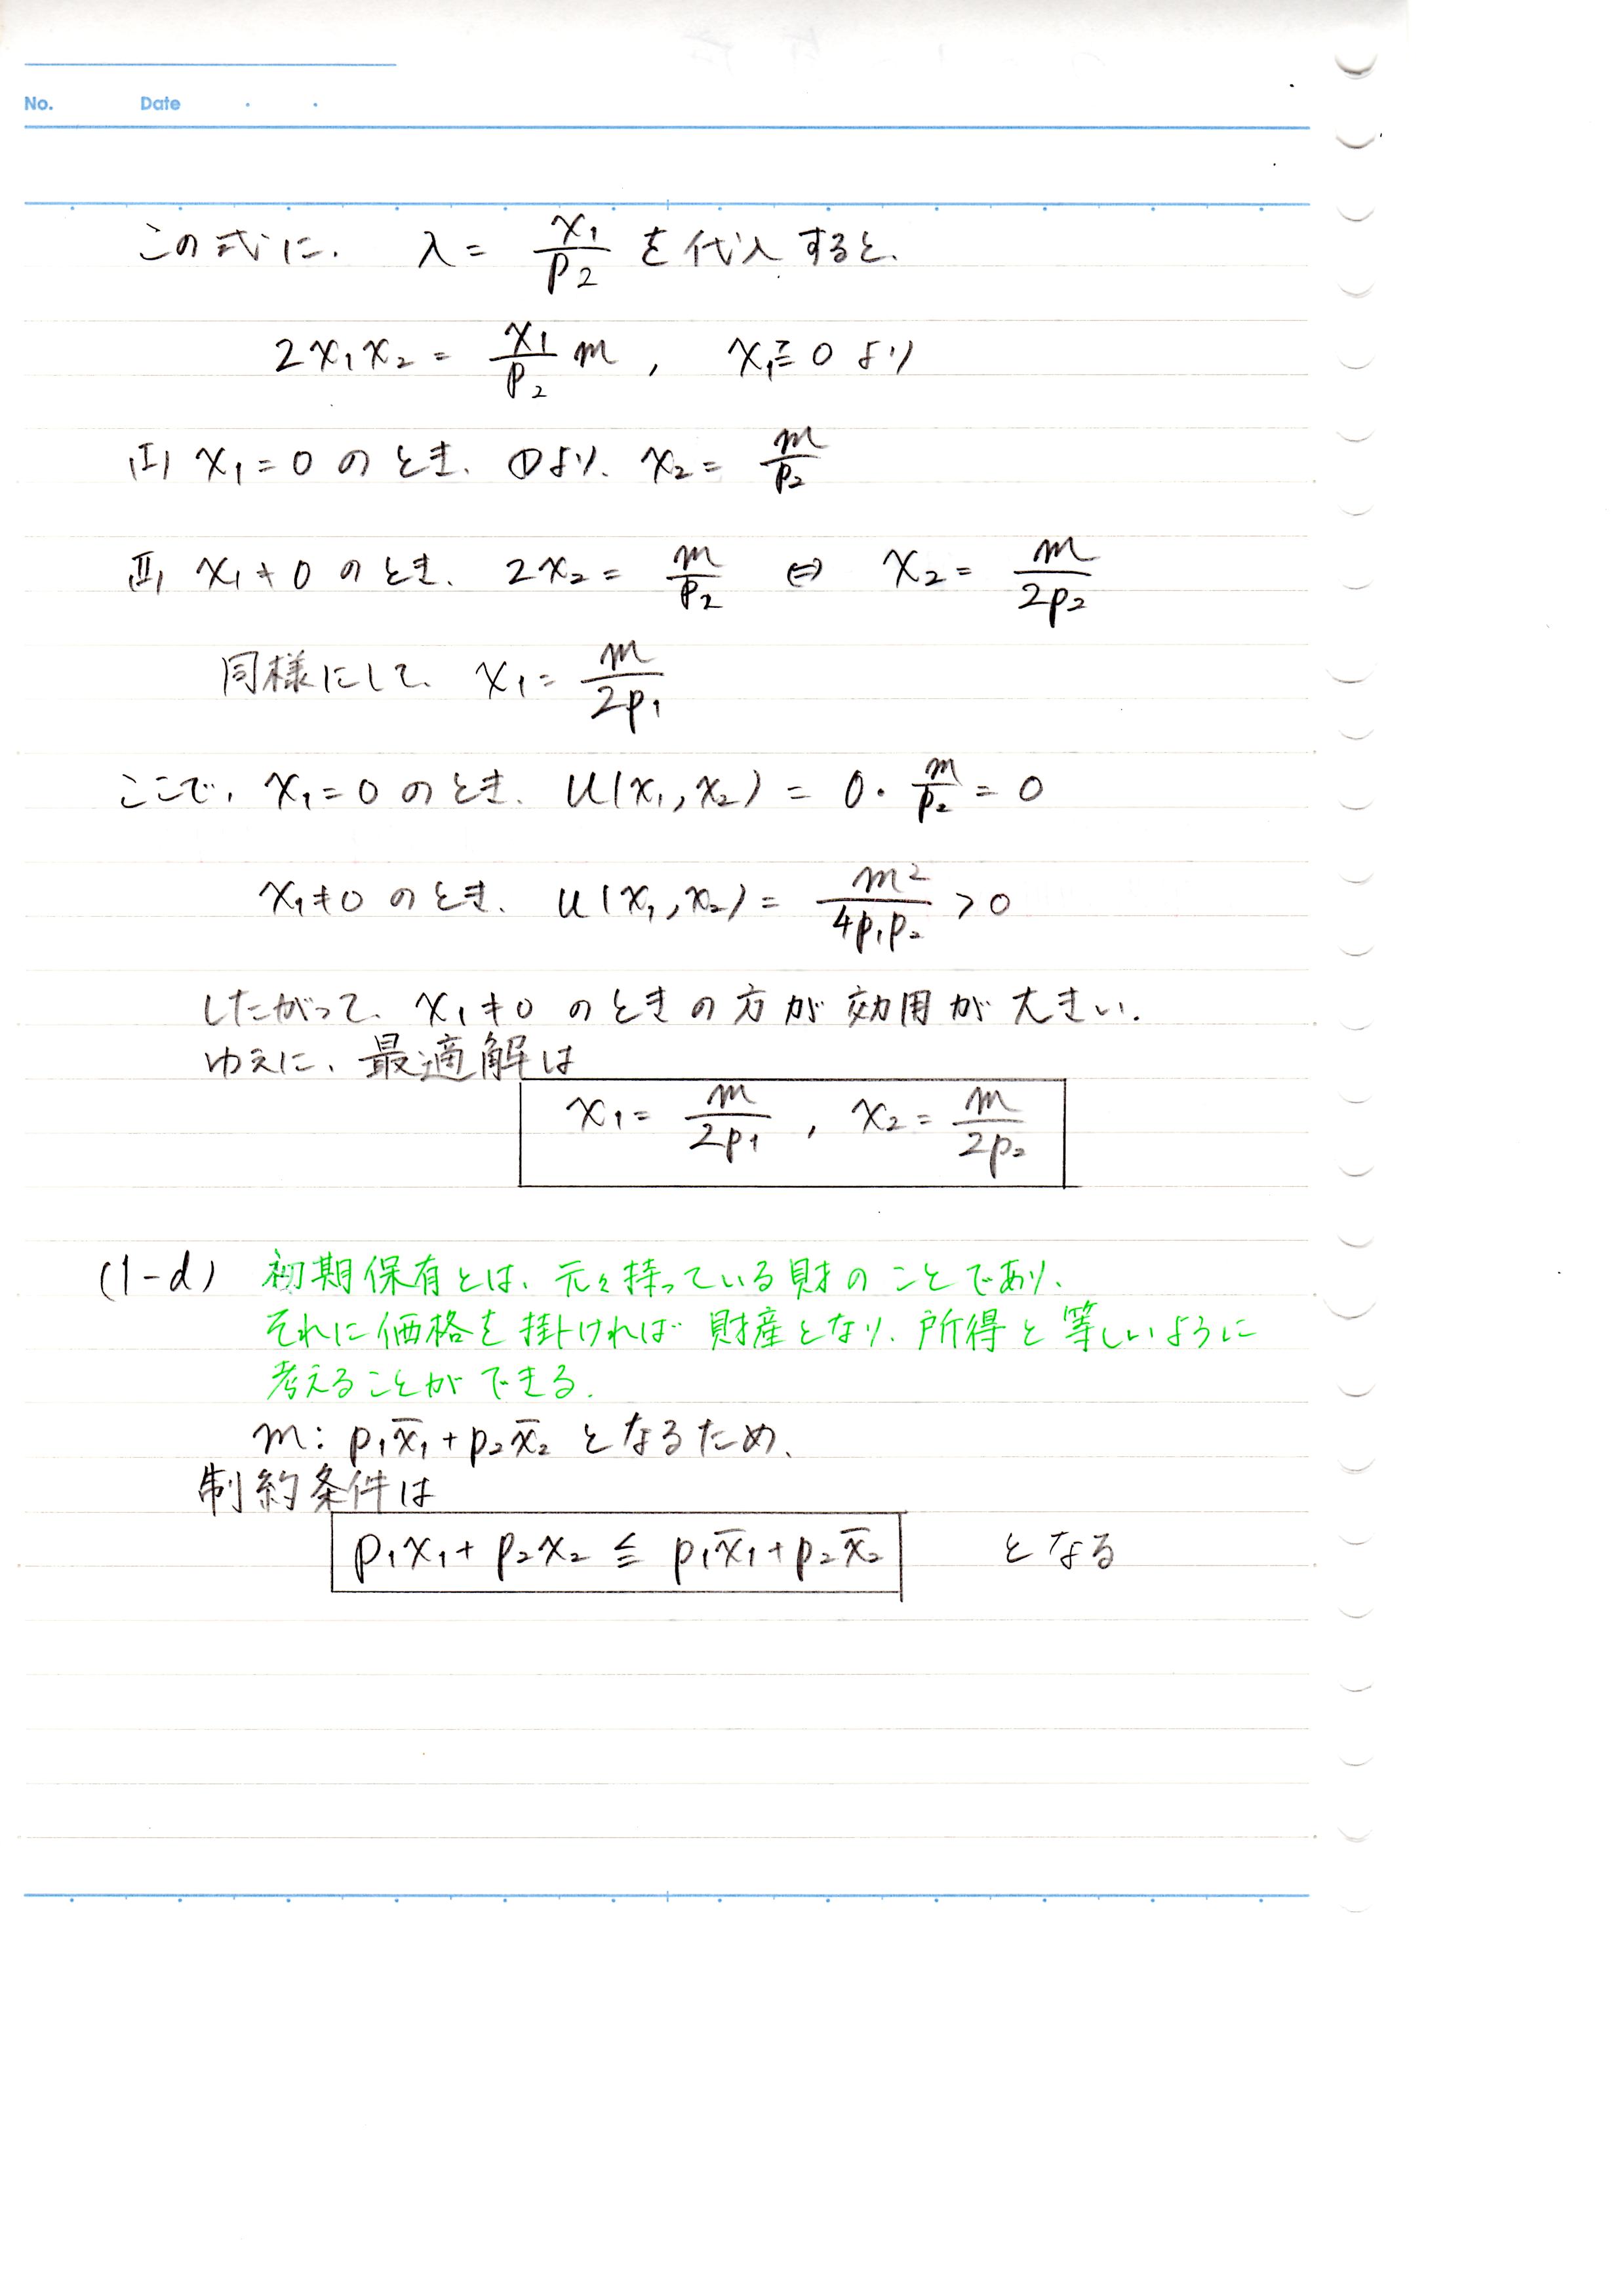 No. Date ・ ・
この式に、 λ = x₁/p₂ を代入すると、
2x₁x₂ = x₁/p₂ m , x₁≧0 より
(I) x₁=0 のとき、①より、 x₂ = m/p₂
(II) x₁≠0 のとき、 2x₂ = m/p₂ ⇔ x₂ = m/2p₂
同様にして、 x₁ = m/2p₁
ここで、 x₁=0 のとき、 u(x₁, x₂) = 0・m/p₂ = 0
x₁≠0 のとき、 u(x₁, x₂) = m²/4p₁p₂ > 0
したがって、 x₁≠0 のときの方が効用が大きい.
ゆえに、最適解は
x₁ = m/2p₁ , x₂ = m/2p₂
(1-d) 初期保有とは、元々持っている財のことであり、
それに価格を掛ければ財産となり、所得と等しいように
考えることができる.
m: p₁x̄₁ + p₂x̄₂ となるため、
制約条件は
p₁x₁ + p₂x₂ ≦ p₁x̄₁ + p₂x̄₂ となる